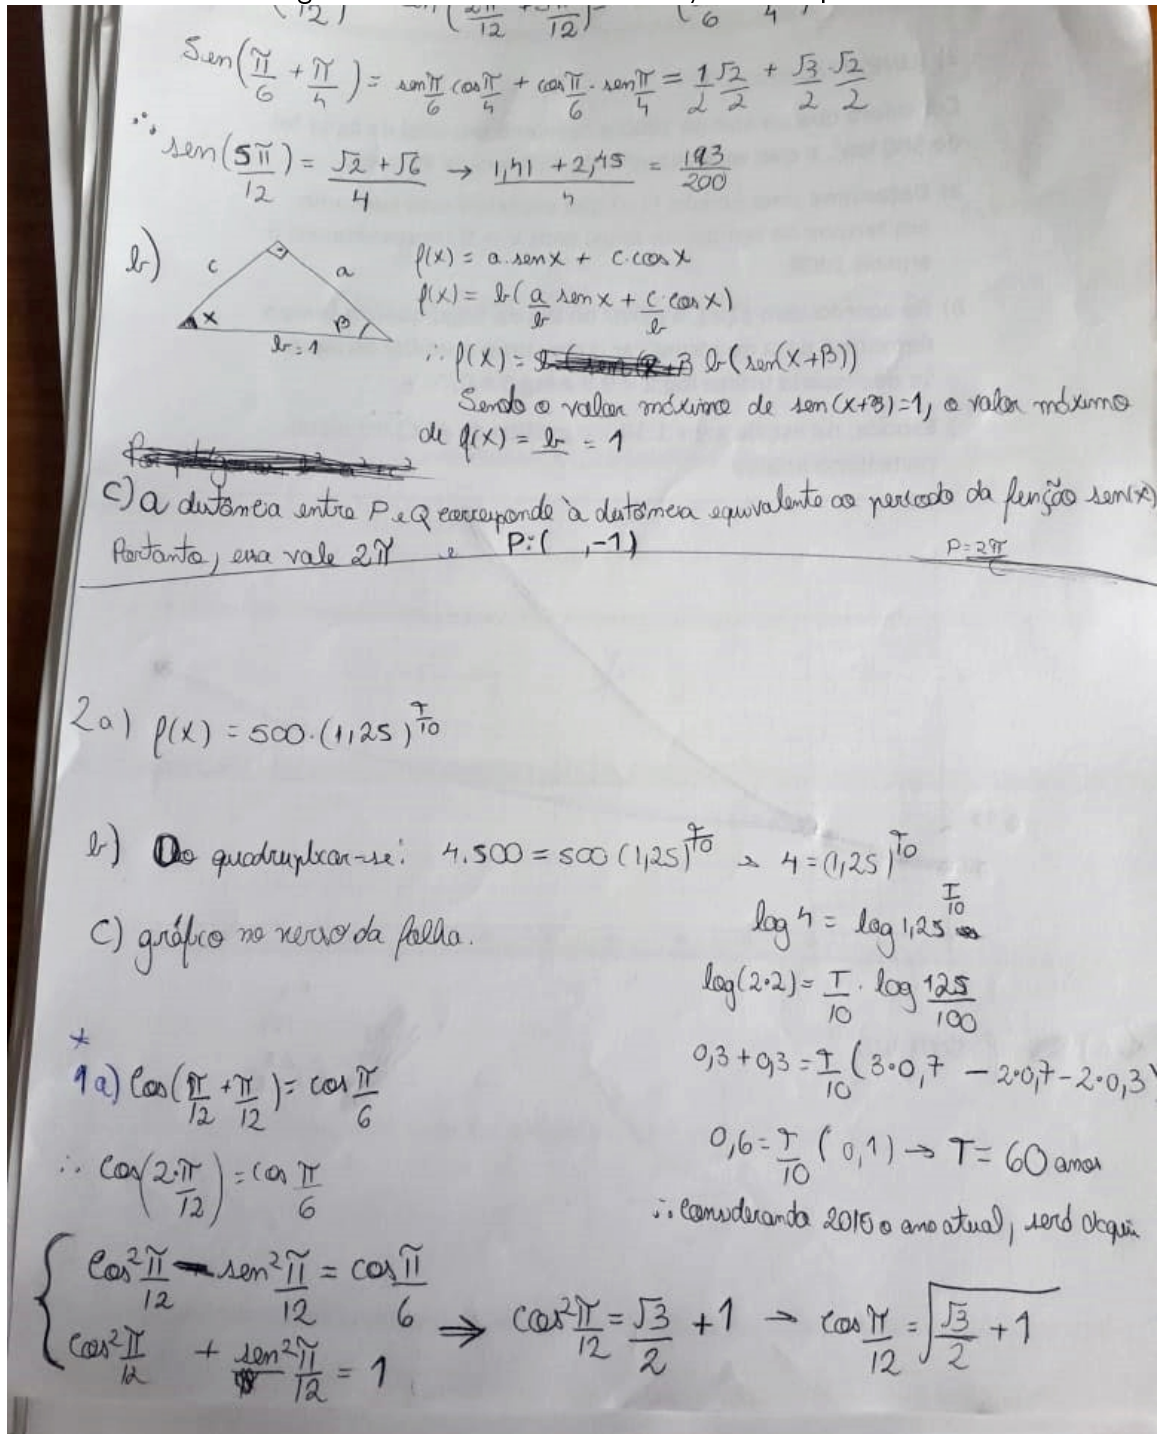 sen(π/6 + π/4) = sen π/6 cos π/4 + cos π/6 · sen π/4 = 1/2 √2/2 + √3/2 · √2/2
∴ sen(5π/12) = (√2 + √6)/4 → (1,41 + 2,45)/4 = 193/200
b) c a x β b=1
f(x) = a.senx + c.cosx
f(x) = b(a/b senx + c/b cosx)
∴ f(x) = b(sen(x+β))
Sendo o valor máximo de sen(x+β)=1, o valor máximo
de f(x) = b = 1
c) a distância entre P e Q corresponde à distância equivalente ao período da função sen(x)
Portanto, essa vale 2π e P:( ,-1) P=2π/C
2a) f(x) = 500.(1,25)^(T/10)
b) Ao quadruplicar-se: 4.500 = 500(1,25)^(T/10) → 4=(1,25)^(T/10)
log 4 = log 1,25^(T/10)
c) gráfico no verso da folha.
log(2·2) = T/10 · log 125/100
0,3+0,3 = T/10 (3·0,7 - 2·0,7 - 2·0,3)
0,6 = T/10 (0,1) → T = 60 anos
∴ Considerando 2010 o ano atual, será daqui
*
1a) Cos(π/12 + π/12) = cos π/6
∴ cos(2·π/12) = cos π/6
{ Cos² π/12 - sen² π/12 = cos π/6
cos² π/12 + sen² π/12 = 1 ⇒ cos² π/12 = √3/2 + 1 → cos π/12 = √(√3/2 + 1)